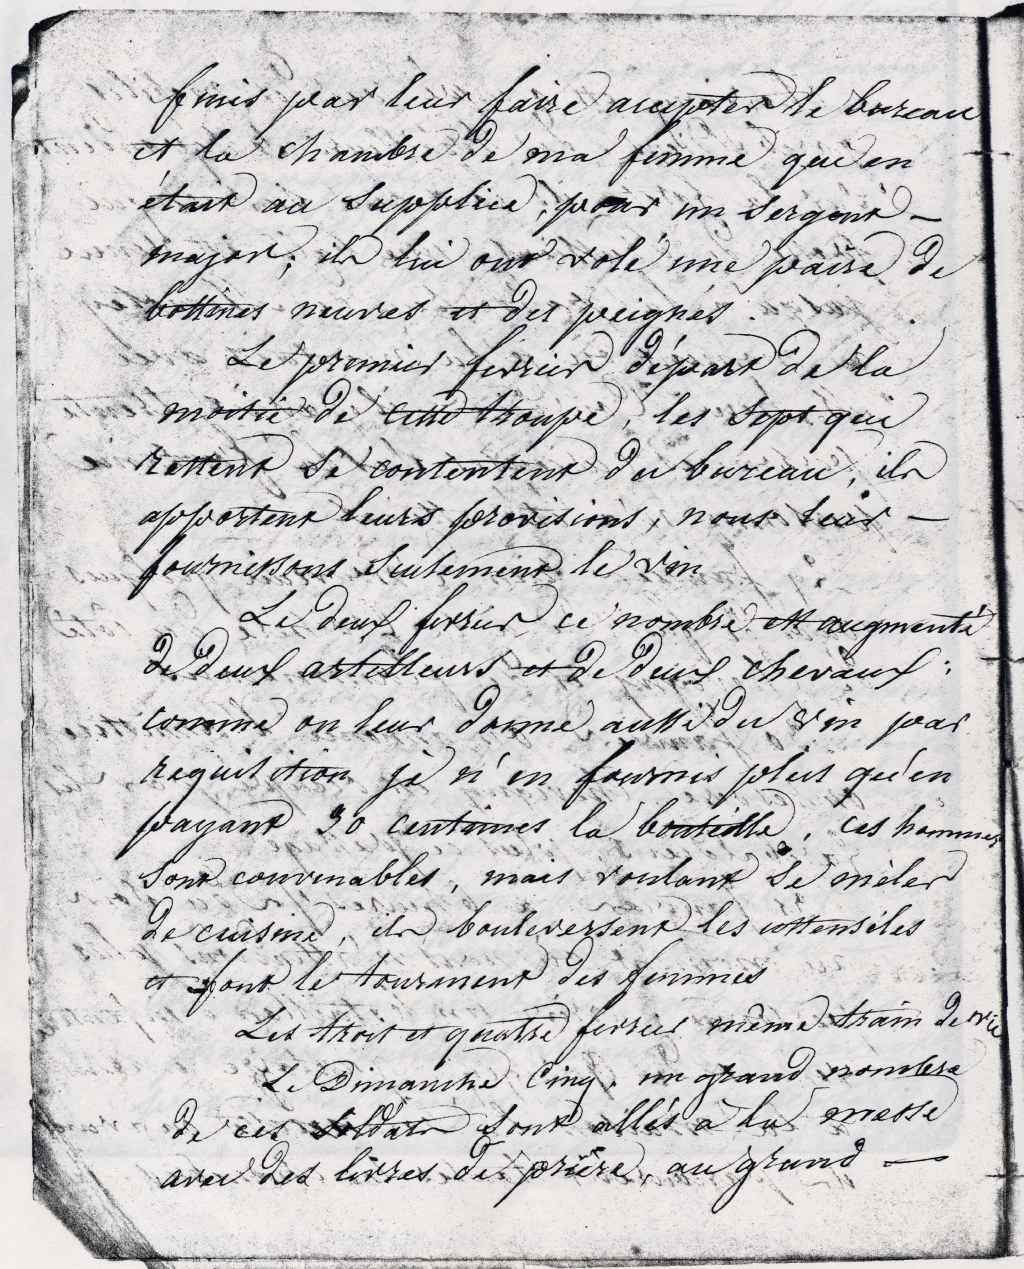 finis par leur faire accepter le bureau
et la chambre de ma femme qui en
était au supplice, pour un sergent –
major; ils lui ont volé une paire de
bottines neuves et des peignes.
Le premier février départ de la
moitié de cette troupe, les sept qui
restent se contentent du bureau, ils
apportent leurs provisions, nous leur –
fournissons seulement le vin
Le deux février ce nombre est augmenté
de deux artilleurs et de deux chevaux:
comme on leur donne aussi du vin par
requisition je n'en fournis plus qu'en
payant 30 centimes la bouteille, ces hommes
sont convenables, mais voulant se mêler
de cuisine, ils bouleversent les ustensiles
et font le tourment des femmes
Les trois et quatre février même train de vie
Le Dimanche cinq, un grand nombre
de ces soldats sont allés à la messe
avec des livres de prière, au grand –